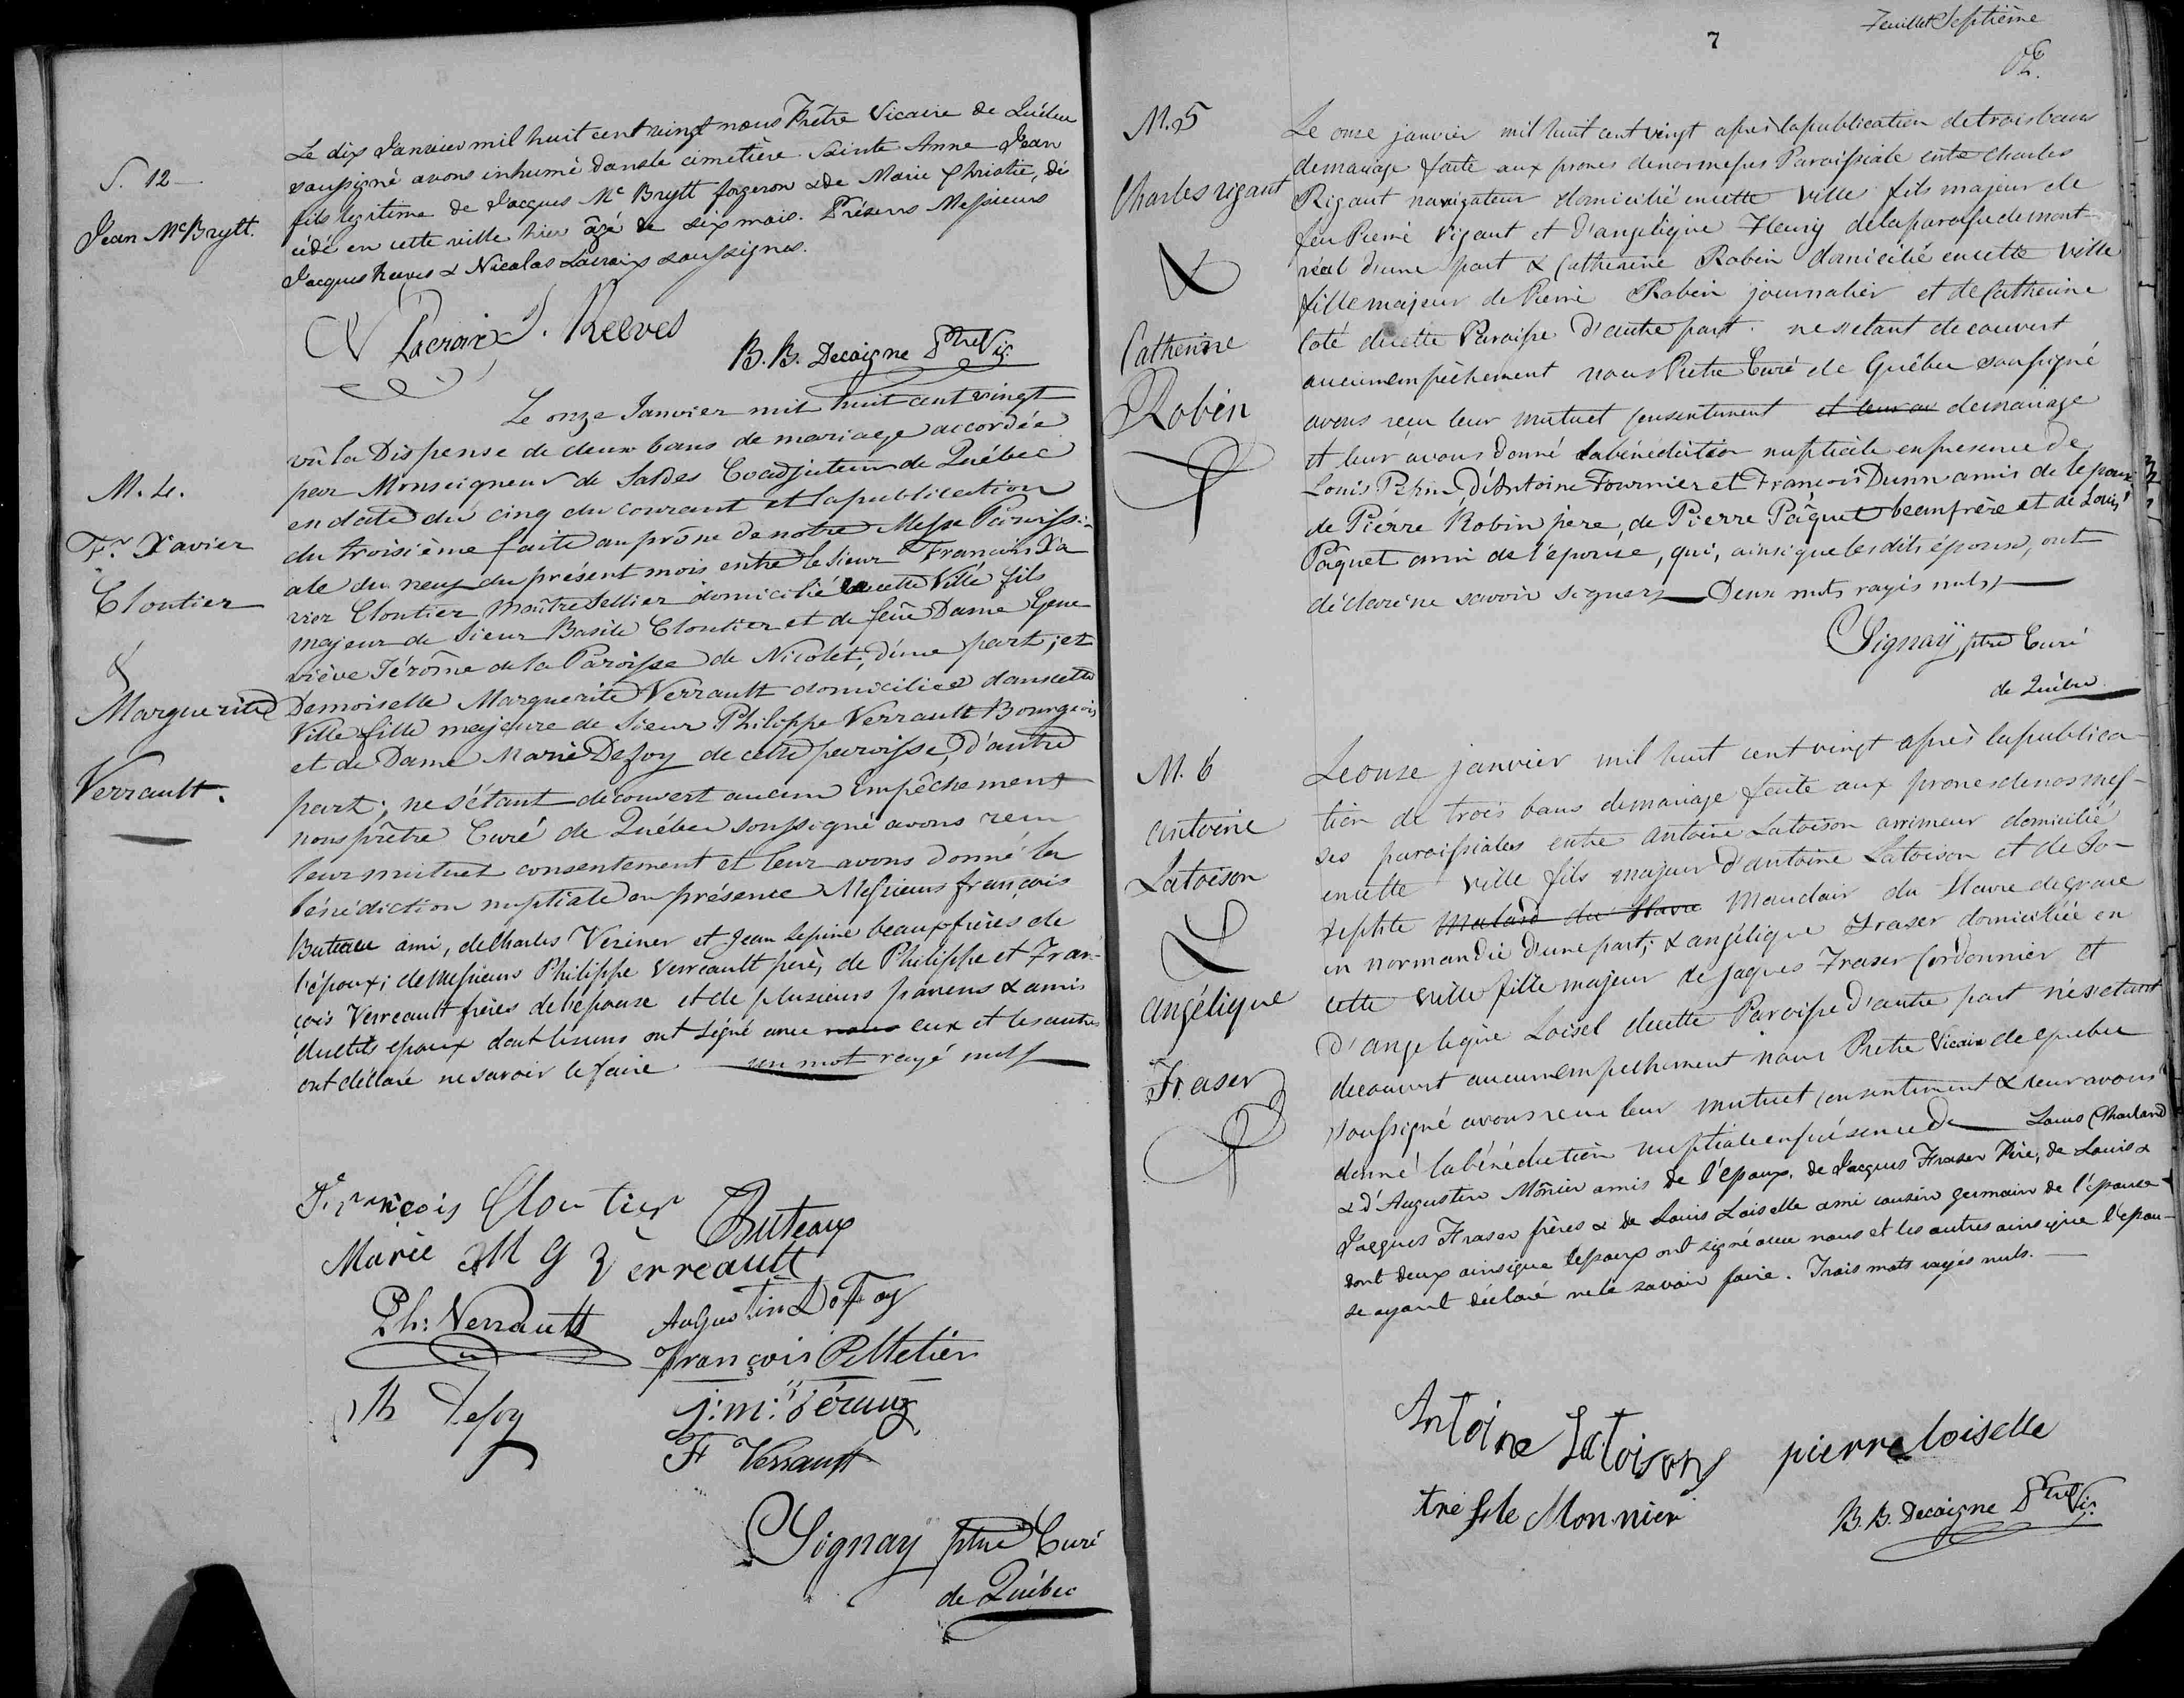 S. 12
Jean McBrytt.
Le dix Janvier mil huit cent vingt nous Prêtre Vicaire de Québec
soussigné avons inhumé dans le cimetière Sainte Anne Jean
fils légitime de Jacques Mc Brytt forgeron & de Marie Christie, dé
cédé en cette ville hier âgé de six mois. Présens Messieurs
Jacques Reeves & Nicolas Lacroix soussignés.
N Lacroix J. Reeves
B.B. Decoigne Ptre Vic.
M. 4.
Fr. Xavier
Cloutier
&
Marguerite
Verrault.
Le onze Janvier mil huit cent vingt
vû la Dispense de deux bans de mariage accordée
par Monseigneur de Saldes Coadjuteur de Québec
en date du cinq du courant et la publication
du troisième faite au prône de notre Messe Paroissi-
ale du neuf du présent mois entre le sieur François Xa
vier Cloutier Maître Sellier domicilié en cette Ville fils
majeur de Sieur Basile Cloutier et de feüe Dame Gene
viève Jérôme de la Paroisse de Nicolet, d'une part; et
Demoiselle Marguerite Verrault domiciliée dans cette
Ville fille majeure de Sieur Philippe Verrault Bourgeois
et de Dame Marie Defoy de cette paroisse, d'autre
part; ne s'étant découvert aucun empêchement
nous prêtre Curé de Québec soussigné avons reçu
leur mutuel consentement et leur avons donné la
bénédiction nuptiale en présence Messieurs françois
Buteau ami, de Charles Veziner et Jean Lepine beaux frères de
l'époux; de Messieurs Philippe Verreault père, de Philippe et Fran-
çois Verreault frères de l'épouse et de plusieurs parens & amis
desdits epoux dont les uns ont signé avec nous eux et les autres
ont déclaré ne savoir le faire un mot rayé nul
François Cloutier
Buteau
Marie M g Verreault
Ph: Verrault
Augustin DeFoy
François Pelletier
Th Defoy
F Verrault
Signaÿ ptre Curé
de Québec
7
Feuillet Septième
M. 5
Charles rigaut
&
Catherine
Robin
Le onze janvier mil huit cent vingt après la publication de trois bans
de mariage faite aux prones de nos messes Paroissiale entre Charles
Rigaut navigateur domicilié en cette ville fils majeur de
feu Pierre Rigaut et d'angelique Fleury de la paroisse de mont-
réal d'une part & Catherine Robin domicilié en cette ville
fille majeur de Pierre Robin journalier et de Catherine
Coté de cette Paroisse d'autre part. ne s'étant decouvert
aucun empêchement nous Prêtre Curé de Québec soussigné
avons reçu leur mutuel consentement et leur av de mariage
et leur avons donné la bénédiction nuptiale en presence de
Louis Pepin d'Antoine Fournier et François Dunn amis de l'epoux
de Pierre Robin père, de Pierre Pâquet beaufrère et de Louis
Pâquet ami de l'épouse, qui, ainsi que les dits époux, ont
déclaré ne savoir signer, Deux mots rayés nuls,
Signaÿ ptre Curé
de Québec
M. 6
antoine
Latoison
&
angélique
Fraser
Le onze janvier mil huit cent vingt après la publica
tion de trois bans de mariage faite aux prones de nos mes-
ses paroissiales entre antoine Latoison arrimeur domicilié
en cette ville fils majeur d'antoine Latoison et de Jo-
sephte Malard du Havre Mauclair du Havre de grace
en normandie d'une part; & angélique Fraser domiciliée en
cette ville fille majeur de Jaques Fraser Cordonnier et
d'angelique Loisel de cette Paroisse d'autre part ne s'étant
decouvert aucun empechement nous Prêtre Vicaire de quebec
soussigné avons reçu leur mutuel consentement & leur avons
donné la bénédiction nuptiale en présence de Louis Charland
& d'Augustin Mônier amis de l'époux, de Jacques Fraser Père, de Louis &
Jacques Fraser frères & de Louis Loiselle ami cousin germain de l'épouse
dont deux ainsi que l'epoux ont signé avec nous et les autres ainsi que l'epou-
se ayant déclaré ne le savoir faire. Trois mots rayés nuls.
Antoine Latoison
pierre loiselle
Monnier
B.B. Decoigne Ptre Vic.